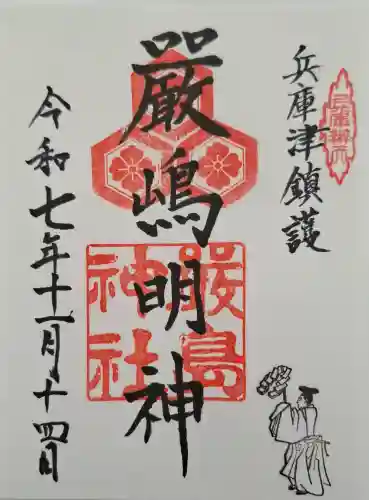 兵庫津鎮護
嚴嶋明神
嚴島
神社
令和七年十一月十四日